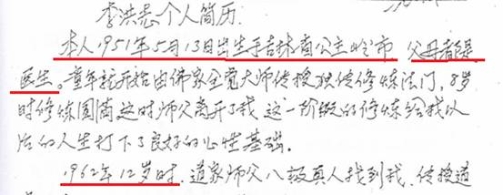 李洪志个人简历.
本人1951年5月13日出生于吉林省公主岭市 父母都是
医生。童年就开始由佛家全觉大师传授独传修炼法门,8岁
时修炼圆满这时师父离开了我,这一阶段的修炼给我以
后的人生打下了良好的心性基础。
1962年12岁时,道家师父八极真人找到我,传授道